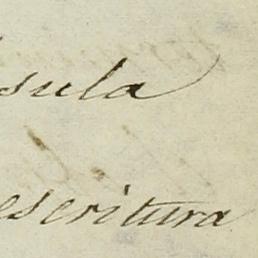 sula
escritura